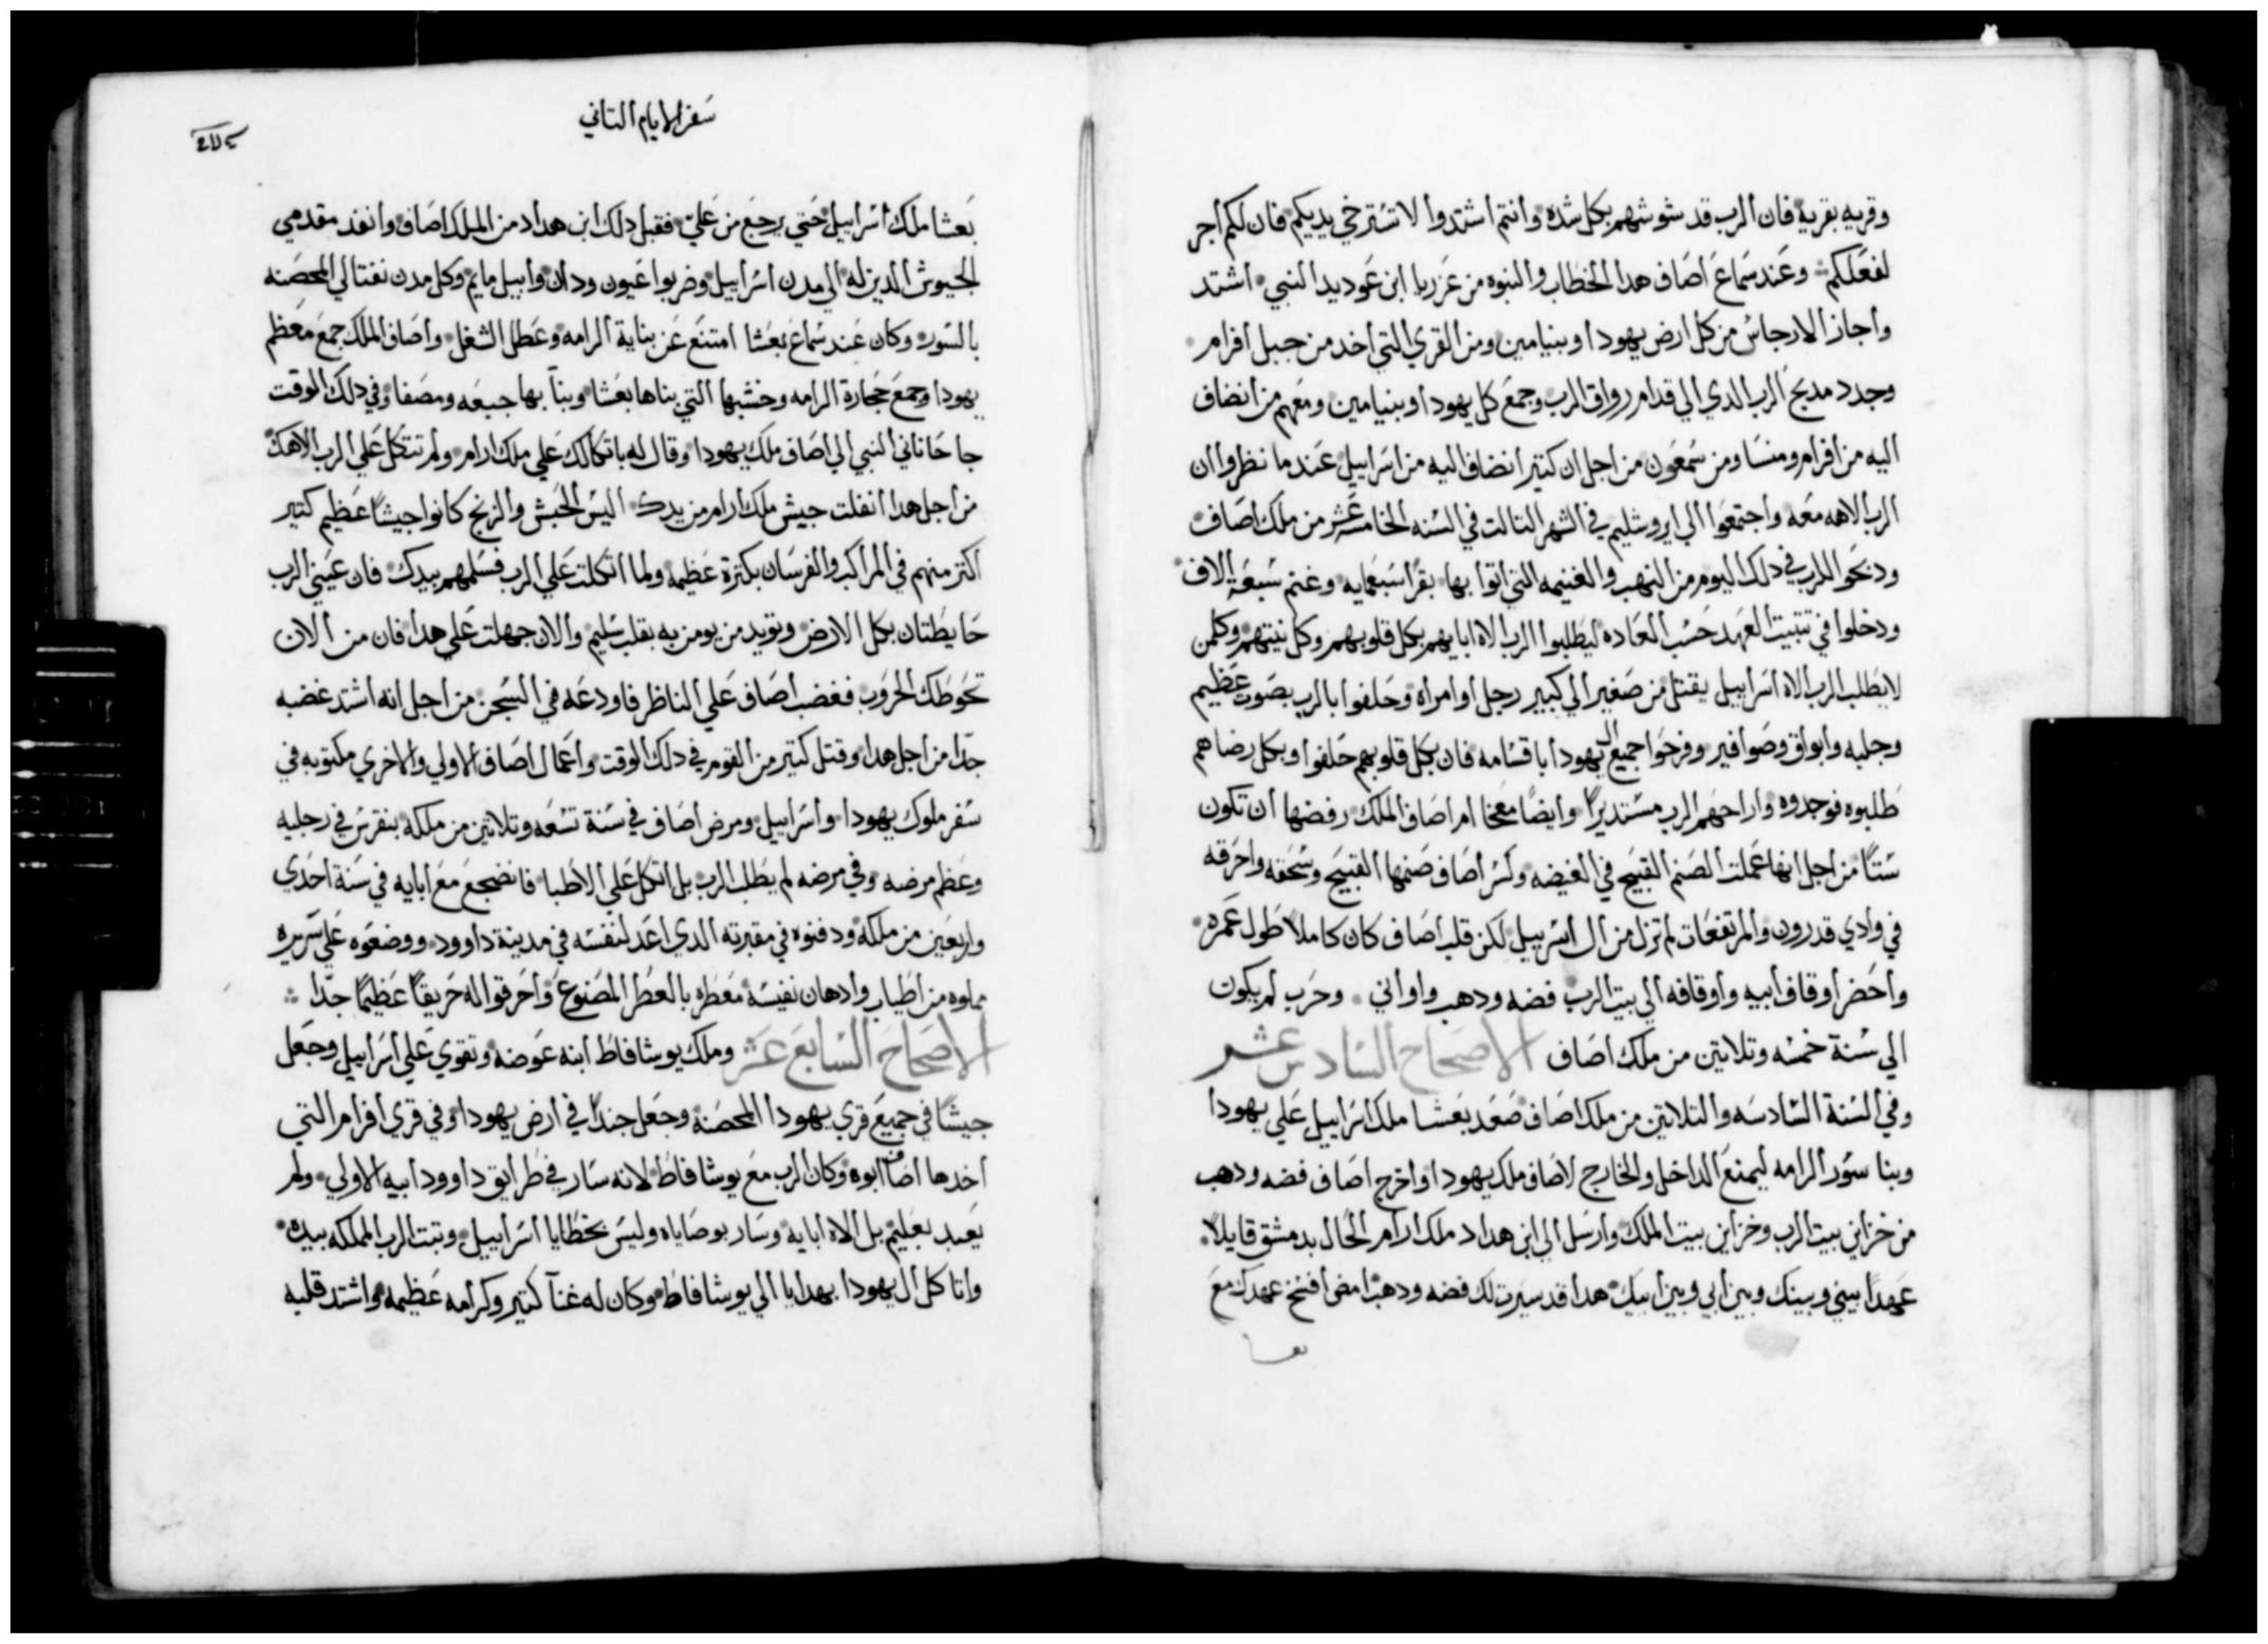 وقريه بقرية فان الرب قد شوشهم بكل شده وانتم اشتدوا لا تسترخي يديكم فان لكم اجر
لفعلكم وعند سماع اصاف هدا الخطاب والنبوه من عزريا ابن عوديد النبي اشتد
واجاز الارجاس من كل ارض يهودا وبنيامين ومن القري التي اخد من جبل افرام
وجدد مدبح الرب الدي الي قدام رواق الرب وجمع كل يهودا وبنيامين ومعهم من انضاف
اليه من افرام ومنسا ومن سمعون من اجل ان كتير انضاف اليه من اسراييل عندما نظروا ان
الرب الاهه معه واجتمعوا الي ايروشليم في الشهر التالت في السنه الخامسة عشر من ملك اصاف
ودبحوا للرب في دلك اليوم من النهب والغنيمه التي اتوا بها بقرا سبعمايه وغنم سبعة الاف
ودخلوا في تتبيت العهد حسب العاده ليطلبوا الرب الاه ابايهم بكل قلوبهم وكل نيتهم وكلمن
لا يطلب الرب الاه اسراييل يقتل من صغير الي كبير رجل او امراه وحلفوا بالرب بصوت عظيم
وجلبه وابواق وصوافير وفرحوا جميع ال يهودا باقسامه فان بكل قلوبهم حلفوا وبكل رضاهم
طلبوه فوجدوه واراحهم الرب مستديرًا وايضًا معخا ام اصاف الملك رفضها ان تكون
ستًا من اجل انها عملت الصنم القبيح في الغيضه وكسر اصاف صنمها القبيح وسحقه واحرقه
في وادي قدرون والمرتفعات لم تزل من ال اسرييل لكن قلب اصاف كان كاملًا طول عمره
واحضر اوقاف ابيه واوقافه الي بيت الرب فضه ودهب واواني وحرب لم يكون
الي سنة خمسه وتلاتين من ملك اصاف الاصحاح السادس عشر
وفي السنة السادسه والتلاتين من ملك اصاف صعد بعشا ملك اسراييل علي يهودا
وبنا سور الرامه ليمنع الداخل والخارج لاصاف ملك يهودا واخرج اصاف فضه ودهب
من خزاين بيت الرب وخزاين بيت الملك وارسل الي ابن هداد ملك ارام الحال بدمشق قايلًا
عهدًا بيني وبينك وبين ابي وبين ابيك هدا قد سيرت لك فضه ودهبًا امض افسخ عهدك مع
بعشا
سفر الايام التاني
بعشا ملك اسراييل حتي يرجع من علي فقبل دلك ابن هداد من الملك اصاف وانفد مقدمي
الجيوش الدين له الي مدن اسراييل وضربوا عيون ودان وابيل مايم وكل مدن نفتالي المحصنه
بالسور وكان عند سماع بعشا امتنع عن بناية الرامه وعطل الشغل واصاف الملك جمع معظم
يهودا وجمع حجارة الرامه وخشبها التي بناها بعشا وبنا بها جبعه ومصفا وفي دلك الوقت
جا حاناني النبي الي اصاف ملك يهودا وقال له باتكالك علي ملك ارام ولم تتكل علي الرب الاهك
من اجل هدا انفلت جيش ملك ارام من يدك اليس الحبش والزنج كانوا جيشًا عظيم كتير
اكتر منهم في المراكب والفرسان بكترة عظيمه ولما اتكلت علي الرب فسلمهم بيدك فان عيني الرب
حايطتان بكل الارض وتويد من يومن به بقلب سليم والان جهلت علي هدا فان من الان
تحوطك الحروب فغضب اصاف علي الناظر فاودعه في السجن من اجل انه اشتد غضبه
جدًا من اجل هدا وقتل كتير من القوم في دلك الوقت واعمال اصاف الاولي والاخري مكتوبه في
سفر ملوك يهودا واسراييل ومرض اصاف في سنة تسعه وتلاتين من ملكه بنقرس في رجليه
وعظم مرضه وفي مرضه لم يطلب الرب بل اتكل علي الاطبا فانضجع مع ابايه في سنة احدي
واربعين من ملكه ودفنوه في مقبرته الدي اعد لنفسه في مدينة داوود ووضعوه علي سريره
مملوه من اطياب وادهان نفيسة معطره بالعطر المصنوع واحرقوا له حريقًا عظيمًا جدًا
الاصحاح السابع عشر وملك يوشافاط ابنه عوضه وتقوي علي اسراييل وجعل
جيشًا في جميع قري يهودا المحصنة وجعل جندًا في ارض يهودا وفي قري افرام التي
اخدها اصاف ابوه وكان الرب مع يوشافاط لانه سار في طرايق داوود ابيه الاولي ولم
يعبد بعليم بل الاه ابايه وسار بوصاياه وليس بخطايا اسراييل وتبت الرب المملكه بيده
واتا كل ال يهودا بهدايا الي يوشافاط وكان له غنا كتير وكرامه عظيمه واشتد قلبه